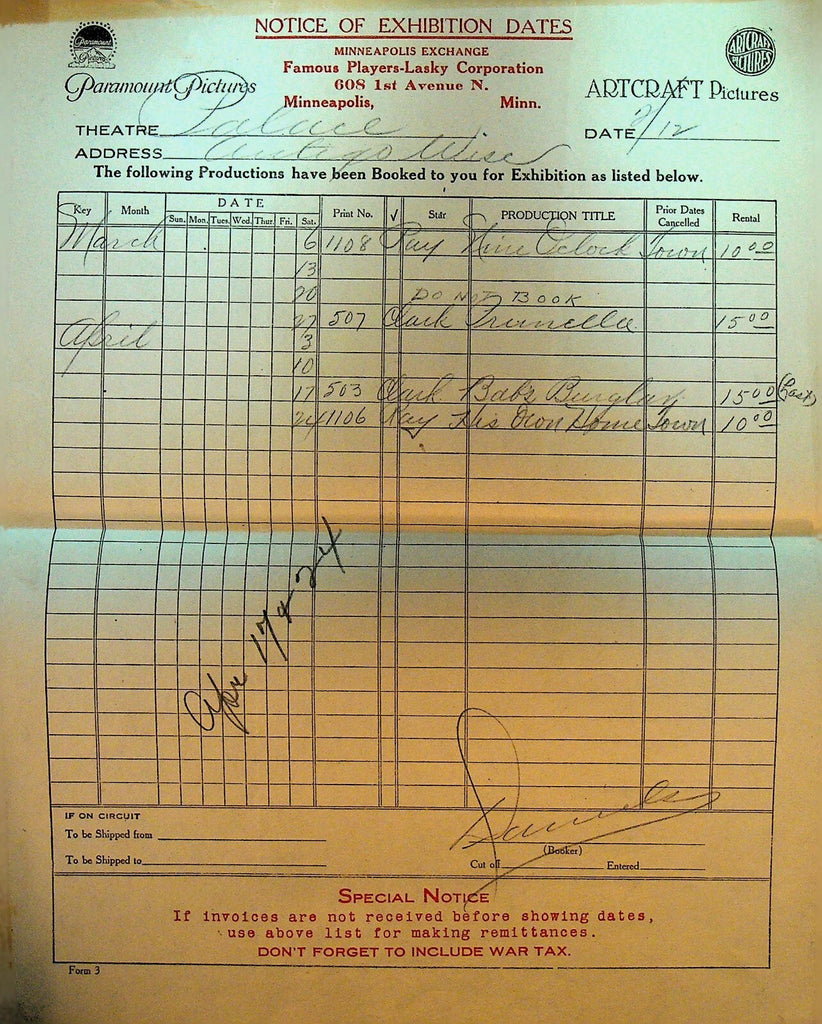 NOTICE OF EXHIBITION DATES
Paramount Pictures
MINNEAPOLIS EXCHANGE
Famous Players-Lasky Corporation
608 1st Avenue N.
Minneapolis, Minn.
ARTCRAFT PICTURES
Paramount Pictures
ARTCRAFT Pictures
THEATRE Palace
DATE 2/12
ADDRESS Antigo Wisc
The following Productions have been Booked to you for Exhibition as listed below.
Key Month DATE Print No. √ Star PRODUCTION TITLE Prior Dates Cancelled Rental
Sun. Mon. Tues. Wed. Thur. Fri. Sat.
March 6 1108 Ray Nine O'clock Town 10 00
13
20 DO NOT BOOK
27 507 Clark 15 00
April 3
10
17 503 Clark Babs Burglar 15 00 (Last)
24 1106 Ray His Own Home Town 10 00
Apr 17 & 24
IF ON CIRCUIT
To be Shipped from
(Booker)
To be Shipped to
Cut off Entered
SPECIAL NOTICE
If invoices are not received before showing dates,
use above list for making remittances.
DON'T FORGET TO INCLUDE WAR TAX.
Form 3